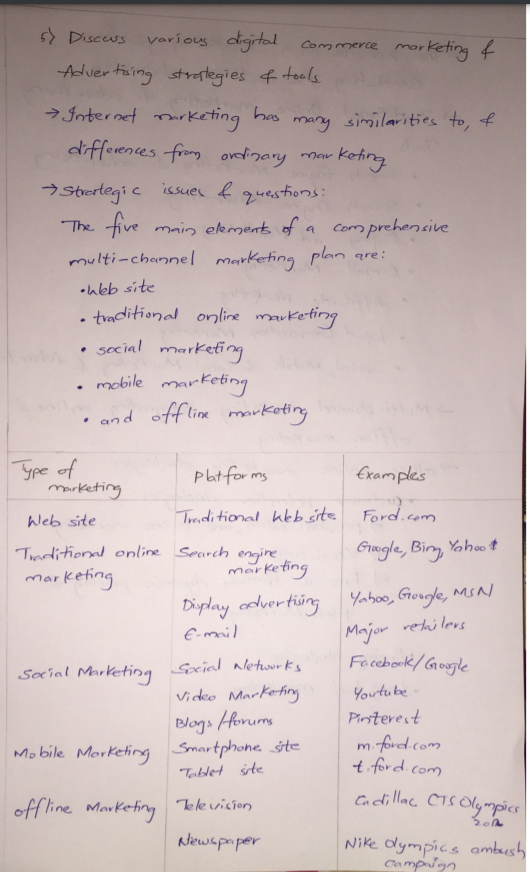 5) Discuss various digital commerce marketing &
Advertising strategies & tools.
→ Internet marketing has many similarities to, &
differences from ordinary marketing
→ Strategic issues & questions:
The five main elements of a comprehensive
multi-channel marketing plan are:
• Web site
• traditional online marketing
• social marketing
• mobile marketing
• and offline marketing
Type of marketing Platforms Examples
Web site Traditional Web site Ford.com
Traditional online marketing Search engine marketing Google, Bing, Yahoo
Display advertising Yahoo, Google, MSN
E-mail Major retailers
Social Marketing Social Networks Facebook/Google
Video Marketing Youtube
Blogs/forums Pinterest
Mobile Marketing Smartphone site m.ford.com
Tablet site t.ford.com
offline Marketing Television Cadillac CTS Olympics 2012
Newspaper Nike Olympics ambush campaign